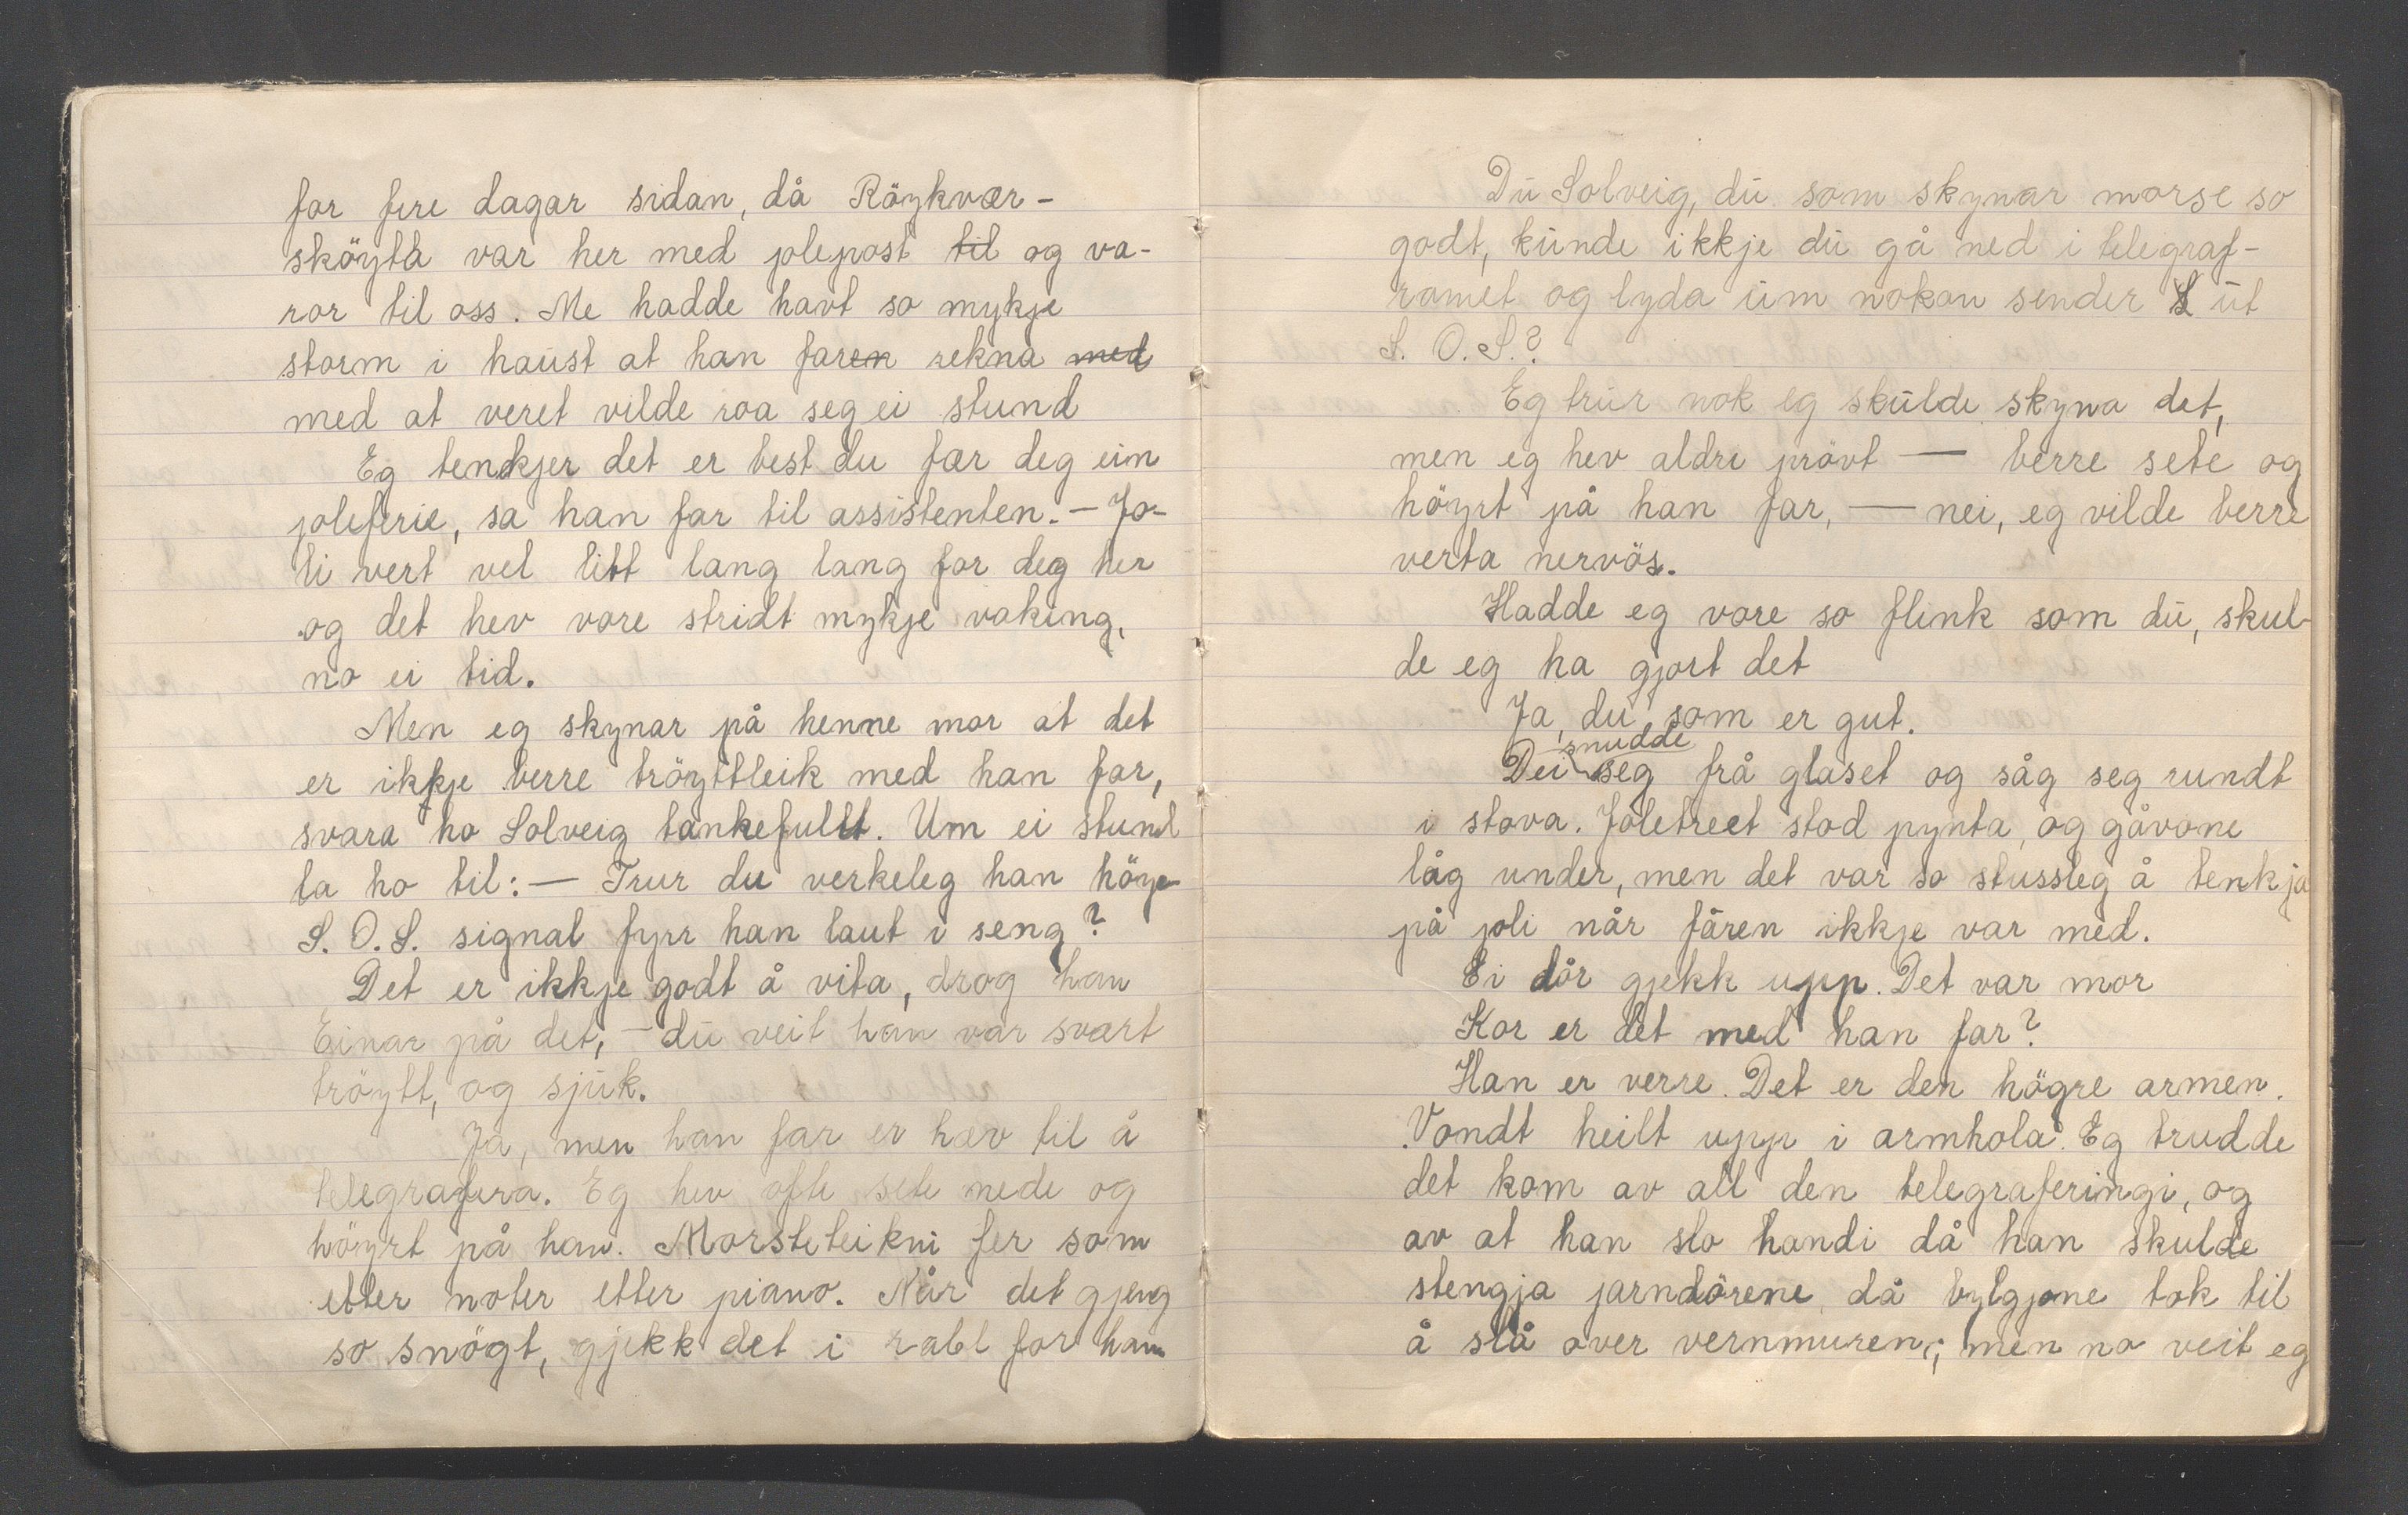 for fire dagar sidan, då Röykvær-
sköyta var her med jolepost til og va-
ror til oss. Me hadde havt so mykje
storm i haust at han faren rekna med
med at veret vilde roa seg ei stund
Eg tenkjer det er best du fær deg ein
joleferie, sa han far til assistenten. - Jo-
li vert vel litt lang lang for deg her
og det hev vore stridt mykje vaking,
no ei tid.
Men eg skynar på henne mor at det
er ikkje berre tröyttleik med han far,
svara ho Solveig tankefullt. Um ei stund
la ho til: - Trur du verkeleg han höyre
S. O. S. signal fyrr han laut i seng?
Det er ikkje godt å vita, drog han
Einar på det, - du veit han var svært
tröytt, og sjuk.
Ja, men han far er hæv til å
telegrafera. Eg hev ofte sete nede og
höyrt på han. Morsteteikni fer som
etter noter etter piano. Når det gjeng
so snögt, gjekk det i rabl for han
Du Solveig, du som skynar morse so
godt, kunde ikkje du gå ned i telegraf-
romet og lyda um nokon sender S ut
S. O. S.?
Eg trur nok eg skulde skyna det,
men eg hev aldri prövt — berre sete og
höyrt på han far, — nei, eg vilde berre
verta nervös.
Hadde eg vore so flink som du, skul-
de eg ha gjort det
Ja, du som er gut.
Dei snudde seg frå glaset og såg seg rundt
i stova. Joletreet stod pynta, og gåvone
låg under, men det var so stussleg å tenkja
på joli når fåren ikkje var med.
Ei dör gjekk upp. Det var mor
Kor er det med han far?
Han er verre. Det er den högre armen.
Vondt heilt upp i armhola. Eg trudde
det kom av all den telegraferingi, og
av at han slo handi då han skulde
stengja jarndörene, då bylgjone tok til
å slå over vernmuren,; men no veit eg